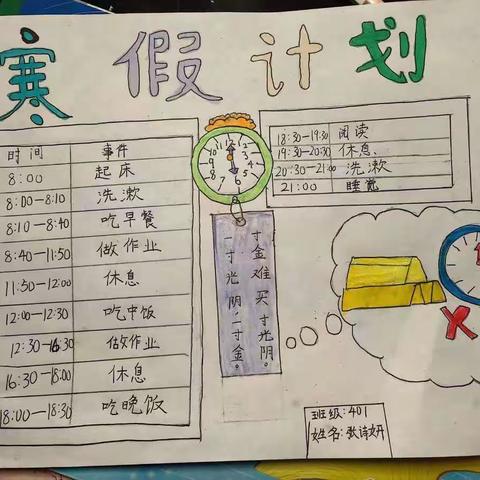 寒假计划
时间 事件
8:00 起床
8:00—8:10 洗漱
8:10—8:40 吃早餐
8:40—11:50 做作业
11:50—12:00 休息
12:00—12:30 吃中饭
12:30—16:30 做作业
16:30—18:00 休息
18:00—18:30 吃晚饭
18:30—19:30 阅读
19:30—20:30 休息
20:30—21:00 洗漱
21:00 睡觉
一寸光阴一寸金。
寸金难买寸光阴。
班级:401
姓名:张诗妍